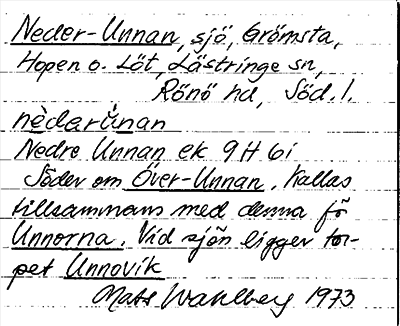 Neder-Unnan, sjö, Grömsta,
Hopen o. Löt, Lästringe sn,
Rönö hd, Söd. l.
nèdarùnan
Nedre Unnan ek 9H 6i
Söder om Över-Unnan. Kallas
tillsammans med denna fö
Unnorna. Vid sjön ligger tor-
pet Unnovik
Mats Wahlberg 1973